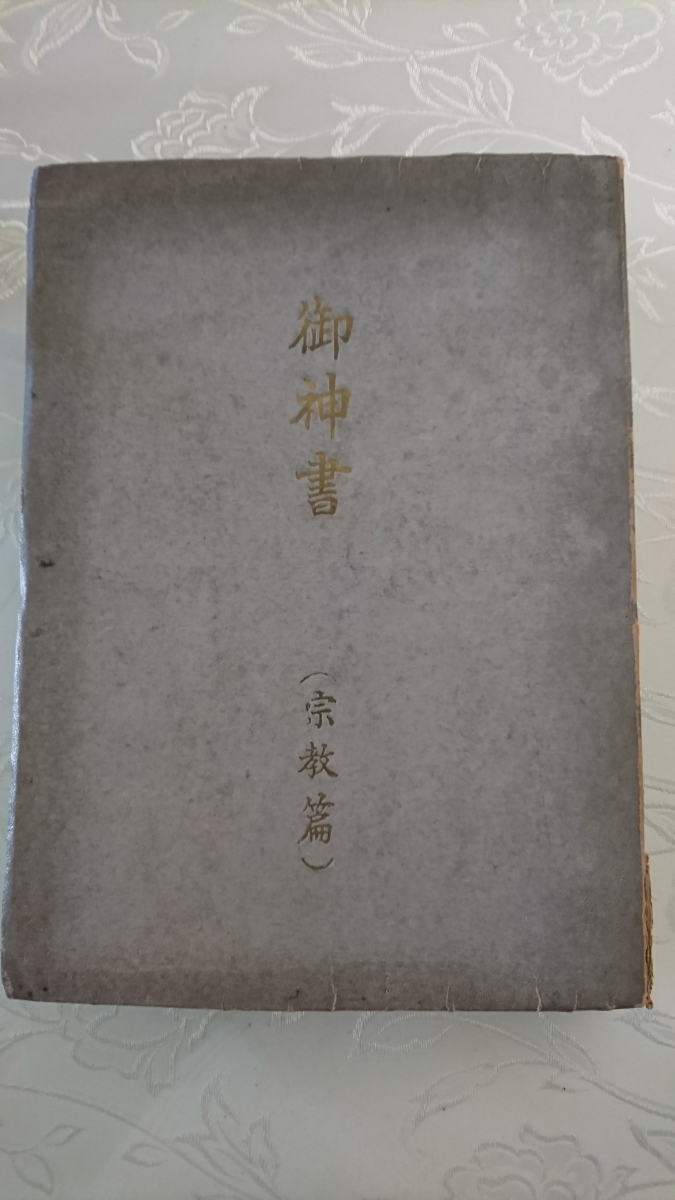 御神書
（宗教篇）